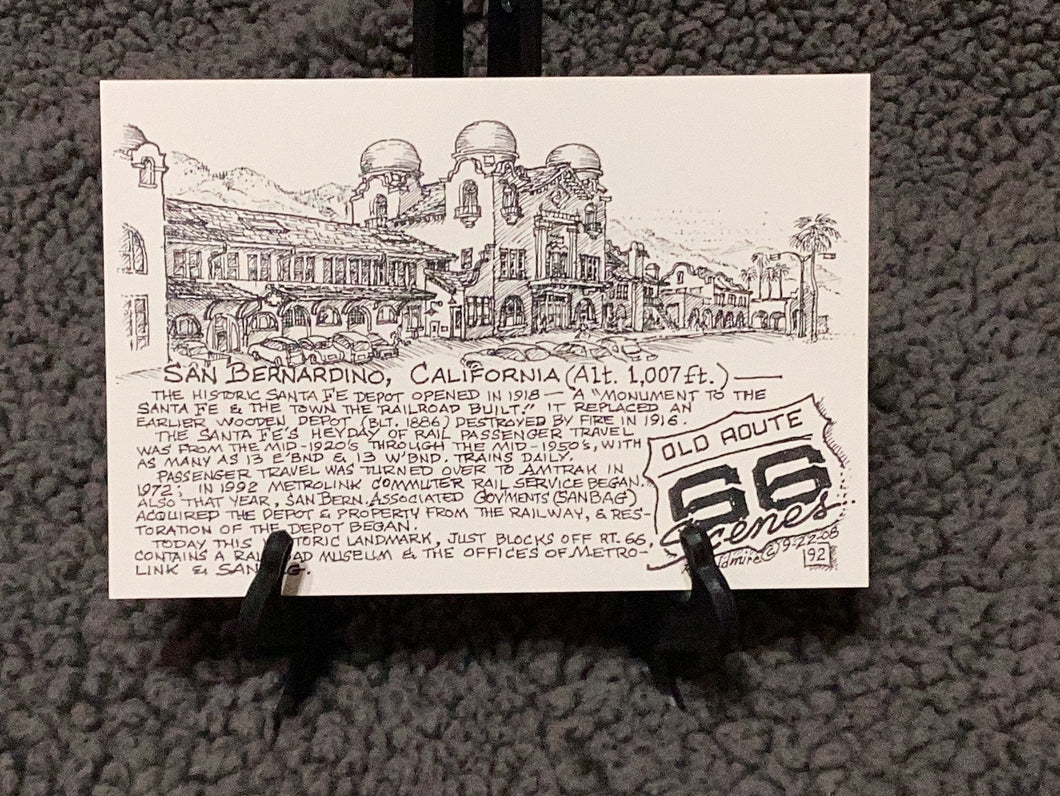 SAN BERNARDINO, CALIFORNIA (Alt. 1,007 ft.) —
THE HISTORIC SANTA FE DEPOT OPENED IN 1918 — A "MONUMENT TO THE
SANTA FE & THE TOWN THE RAILROAD BUILT." IT REPLACED AN
EARLIER WOODEN DEPOT (BLT. 1886) DESTROYED BY FIRE IN 1916.
THE SANTA FE'S HEYDAY OF RAIL PASSENGER TRAVEL
WAS FROM THE MID-1920'S THROUGH THE MID-1950'S, WITH
AS MANY AS 13 E'BND & 13 W'BND. TRAINS DAILY.
PASSENGER TRAVEL WAS TURNED OVER TO AMTRAK IN
1972; IN 1992 METROLINK COMMUTER RAIL SERVICE BEGAN.
ALSO THAT YEAR, SAN BERN. ASSOCIATED GOV'MENTS (SANBAG)
ACQUIRED THE DEPOT & PROPERTY FROM THE RAILWAY, & RES-
TORATION OF THE DEPOT BEGAN.
TODAY THIS TORIC LANDMARK, JUST BLOCKS OFF RT. 66,
CONTAINS A RAI AD MUSEUM & THE OFFICES OF METRO-
LINK & SAN G.
OLD ROUTE
66
Scenes
ldmire © 9-22-05
192